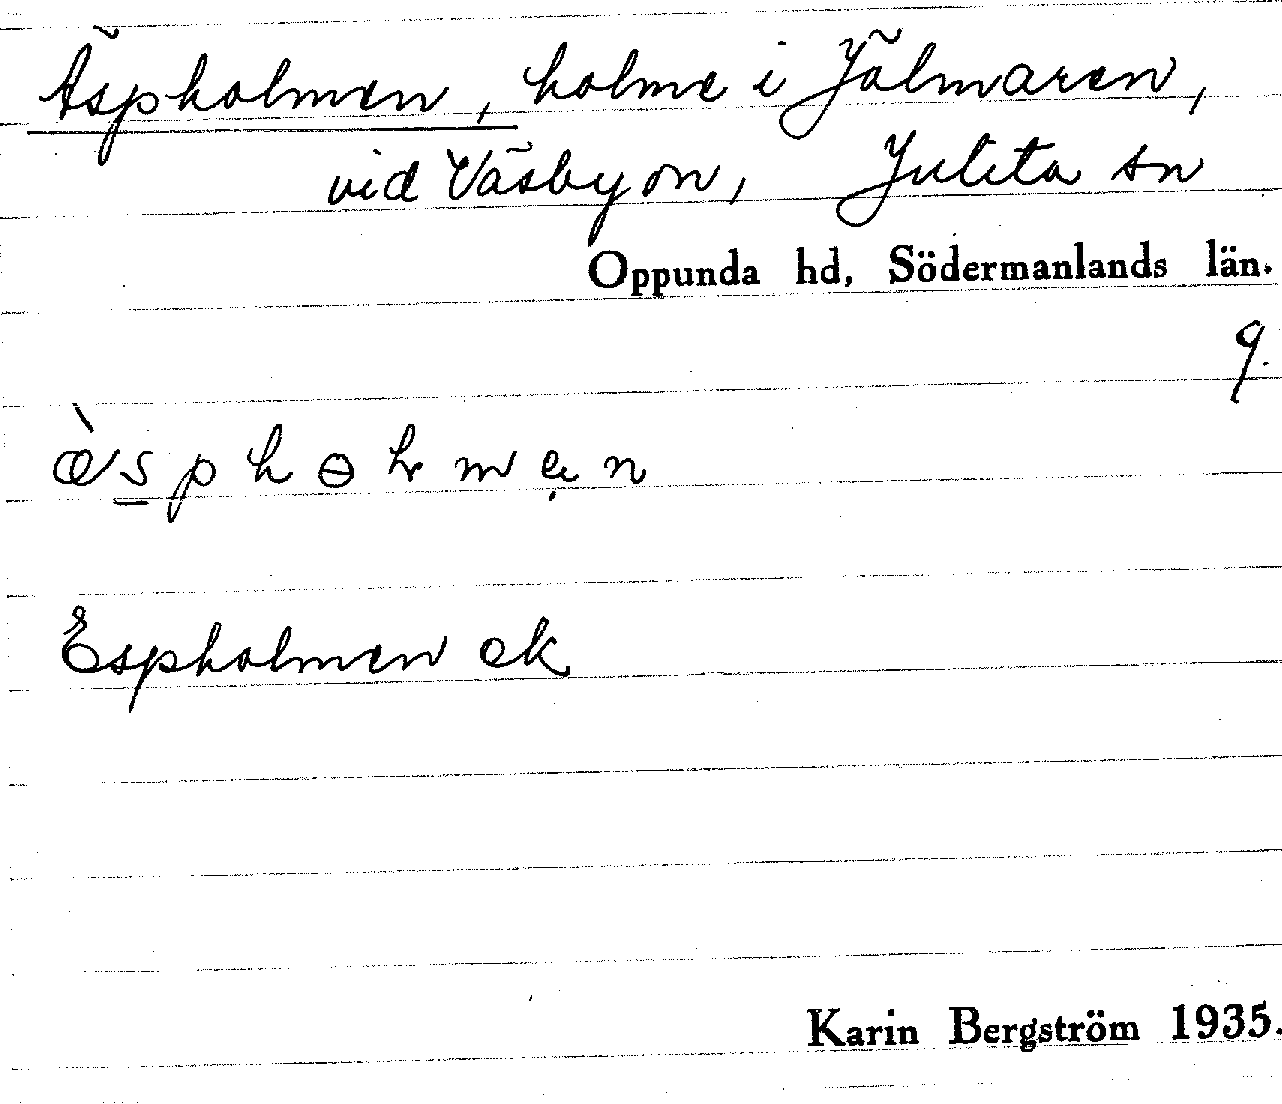 Äspholmen, holme i Jälmaren,
vid Väsbyön, Julita sn
Oppunda hd, Södermanlands län.
9.
æ̀sphɵlmen
Espholmen ek
Karin Bergström 1935.